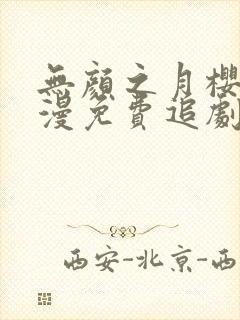 無顏之月櫻
漫免費追劇
西安-北京-西